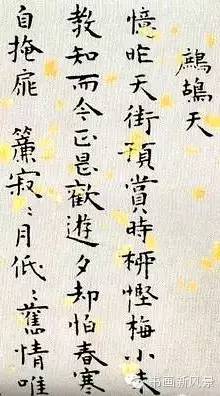 鷓鴣天
憶昨天街預賞時柳慳梅小未
教知而今正是歡遊夕却怕春寒
自掩扉 簾寂〻月低〻舊情唯
书画新风景